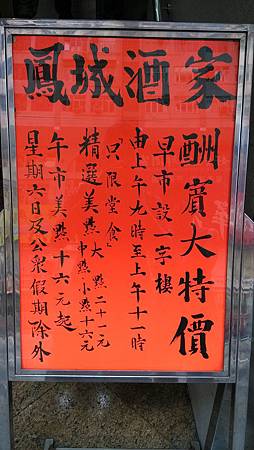 鳳城酒家
酬賓大特價
早市設一字樓
由上午九時至上午十一時
「只限堂食」
精選美點 大點二十一元
中點 小點十六元
午市美點十六元起
星期六日及公眾假期除外